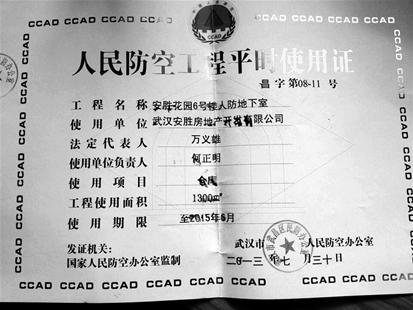 CCAD CCAD CCAD CCAD CCAD CCAD CCAD
人民防空工程平时使用证
昌 字 第08-11 号
工 程 名 称 安胜花园6号楼人防地下室
使 用 单 位 武汉安胜房地产开发有限公司
法 定 代 表 人 万义雄
使用单位负责人 何正明
使 用 项 目 仓库
工程使用面积 1300m²
使 用 期 限 至2015年6月
发证机关: 武汉市 人民防空办公室
国家人民防空办公室监制 二〇一三 年 七 月 三十 日
CCAD CCAD CCAD CCAD CCAD CCAD CCAD CCAD CCAD